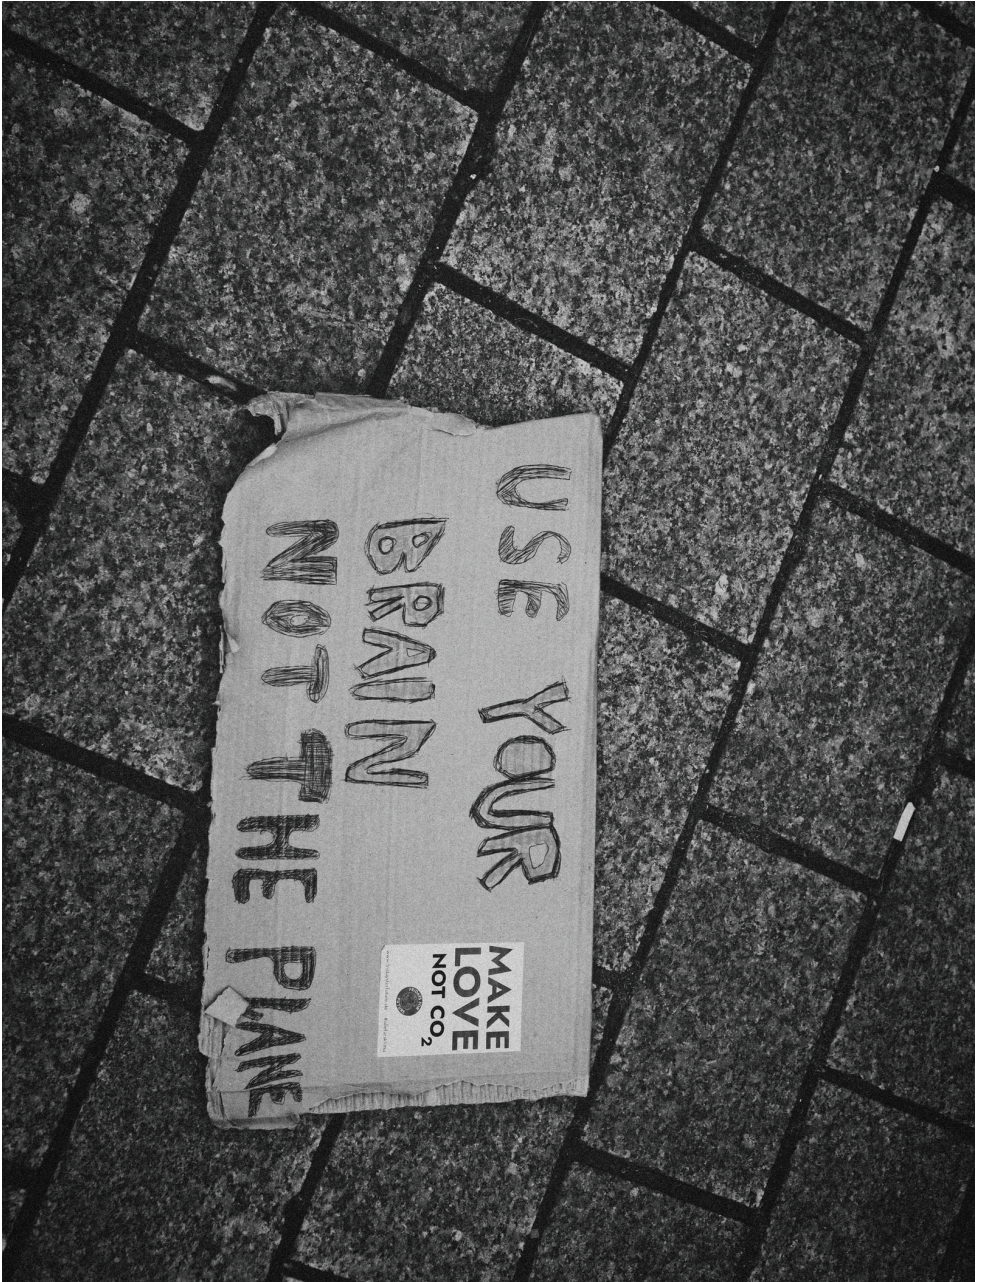 USE YOUR
BRAIN
NOT THE PLANE
MAKE
LOVE
NOT CO₂